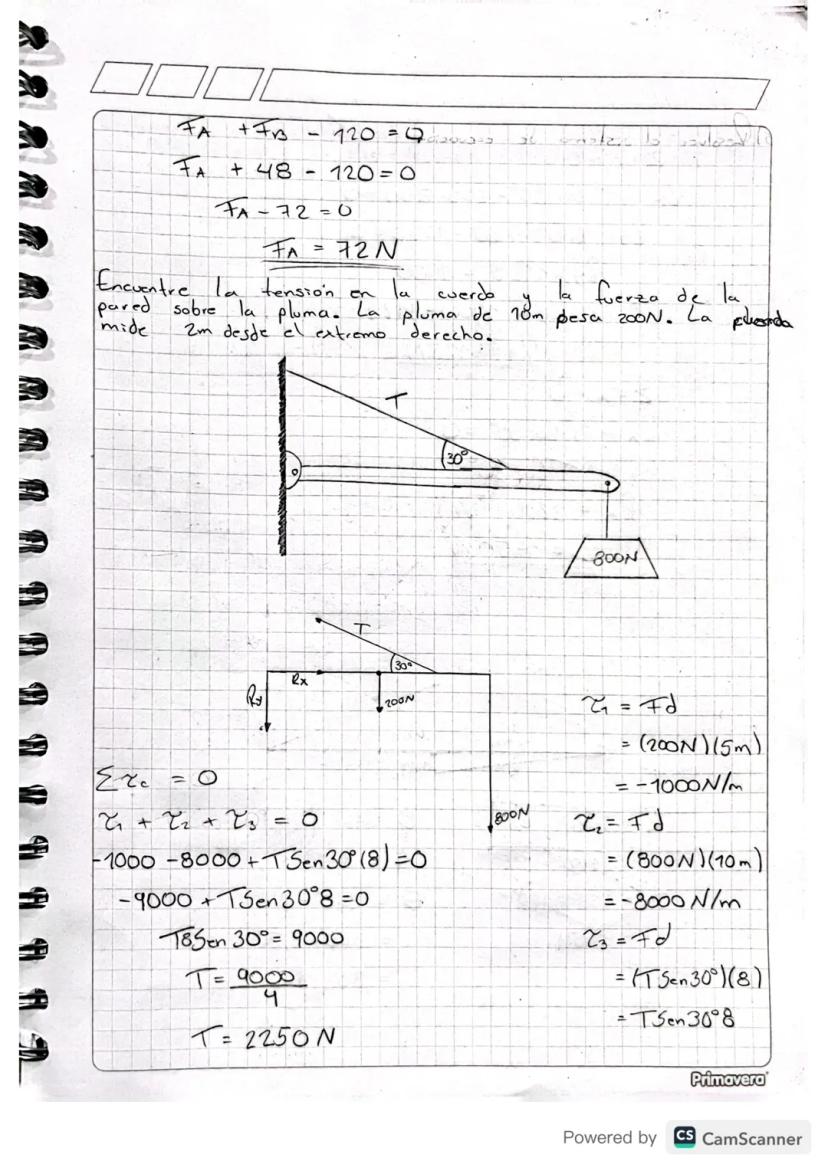 FA + FB - 120 = 0
FA + 48 - 120 = 0
FA - 72 = 0
FA = 72 N
Encuentre la tensión en la cuerda y la fuerza de la
pared sobre la pluma. La pluma de 10m pesa 200N. La
mide 2m desde el extremo derecho.
T
30°
800N
T
30°
Rx
Ry
200N
800N
τ₁ = Fd
= (200N)(5m)
= -1000 N/m
τ₂ = Fd
= (800N)(10m)
= -8000 N/m
τ₃ = Fd
= (T Sen30°)(8)
= T Sen30°8
Στc = 0
τ₁ + τ₂ + τ₃ = 0
-1000 - 8000 + T Sen30°(8) = 0
-9000 + T Sen30°8 = 0
T8Sen 30° = 9000
T = 9000/4
T = 2250 N
Primavera
Powered by CS CamScanner